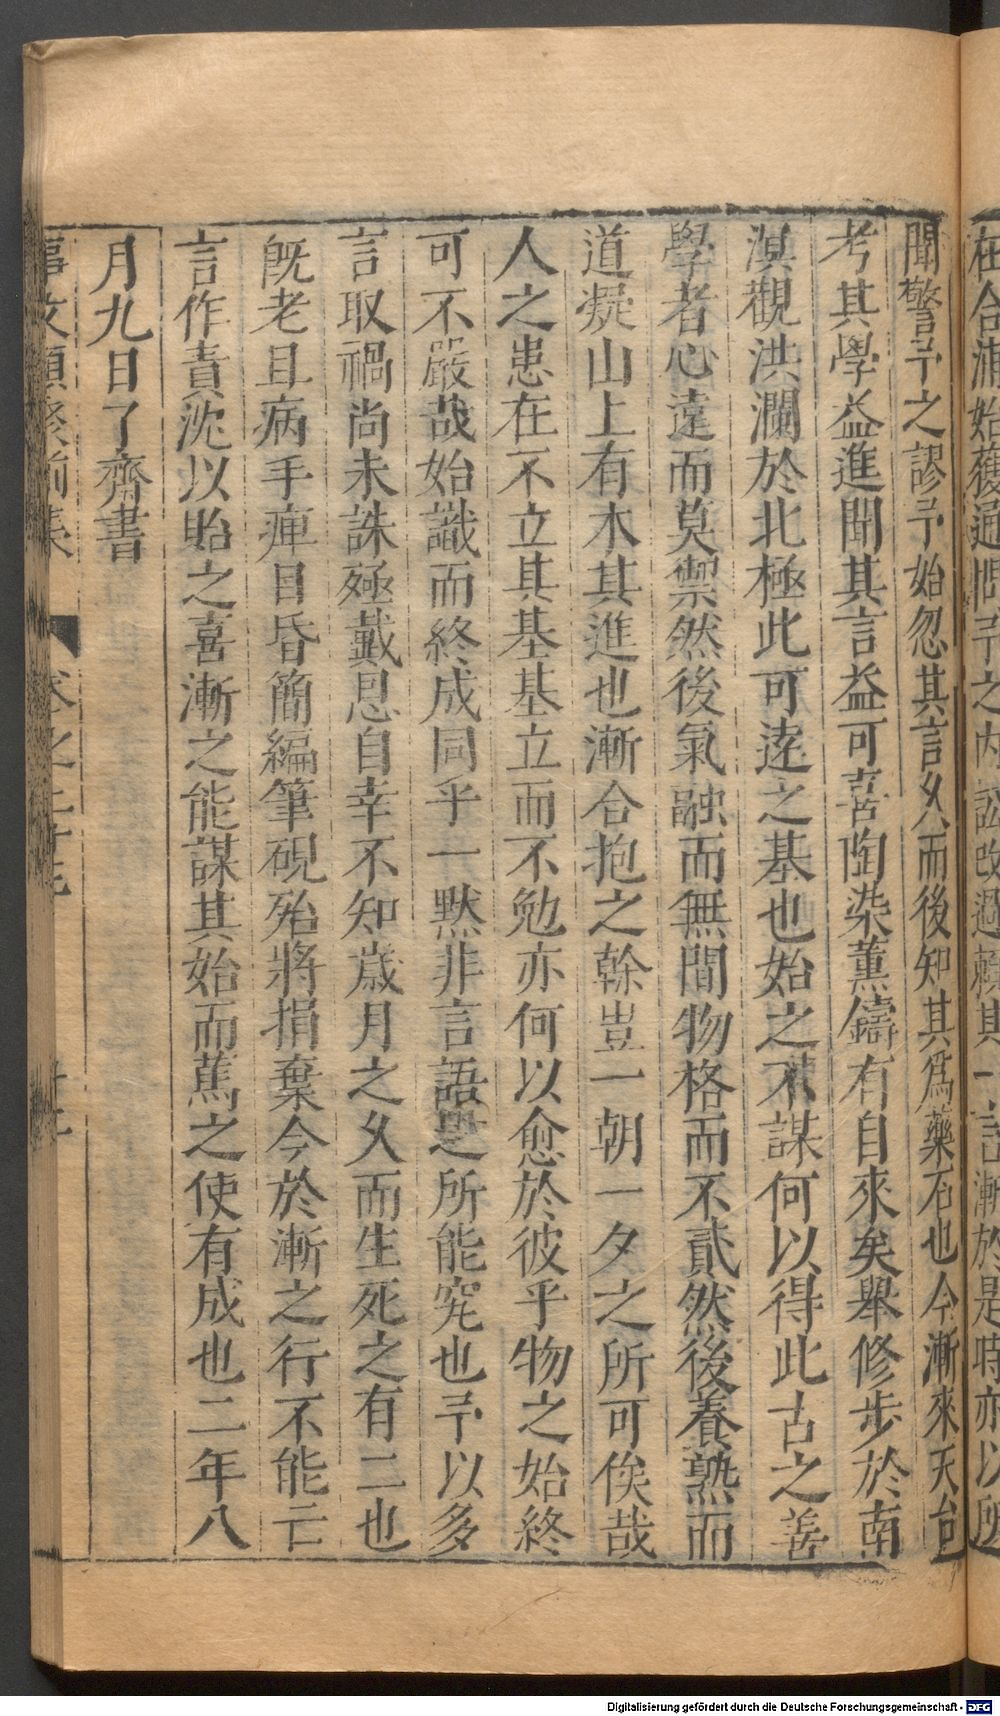 在合浦始獲通問予之內訟改過賴其一言漸於是時亦以所
聞警予之謬予始忽其言久而後知其爲藥石也今漸來天台
考其學益進聞其言益可喜陶染薰鑄有自來矣舉修步於南
溟觀洪瀾於北極此可逹之基也始之不謀何以得此古之善
學者心遠而莫禦然後氣融而無間物格而不貳然後養熟而
道凝山上有木其進也漸合抱之幹豈一朝一夕之所可俟哉
人之患在不立其基基立而不勉亦何以愈於彼乎物之始終
可不嚴哉始識而終成同乎一默非言語是所能究也予以多
言取禍尚未誅殛戴恩自幸不知歲月之久而生死之有二也
旣老且病手痺目昏簡編筆硯殆將捐棄今於漸之行不能亡
言作責沈以貽之喜漸之能謀其始而蔿之使有成也二年八
月九日了齊書
事文類聚前集
Digitalisierung gefördert durch die Deutsche Forschungsgemeinschaft - DFG